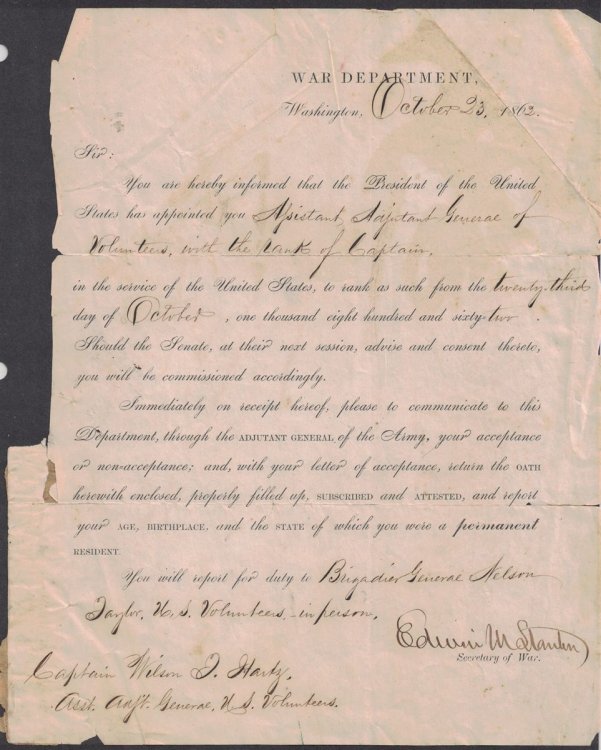 WAR DEPARTMENT,
Washington, October 23, 1862.
Sir:
You are hereby informed that the President of the United
States has appointed you Assistant Adjutant General of
Volunteers, with the rank of Captain,
in the service of the United States, to rank as such from the twenty-third
day of October, one thousand eight hundred and sixty-two.
Should the Senate, at their next session, advise and consent thereto,
you will be commissioned accordingly.
Immediately on receipt hereof, please to communicate to this
Department, through the ADJUTANT GENERAL of the Army, your acceptance
or non-acceptance; and, with your letter of acceptance, return the OATH
herewith enclosed, properly filled up, SUBSCRIBED and ATTESTED, and report
your AGE, BIRTHPLACE, and the STATE of which you were a permanent
RESIDENT.
You will report for duty to Brigadier General Nelson
Taylor, U. S. Volunteers, in person,
Edwin M Stanton
Secretary of War.
Captain Wilson T. Hartz,
Asst. Adjt. General, U S. Volunteers.